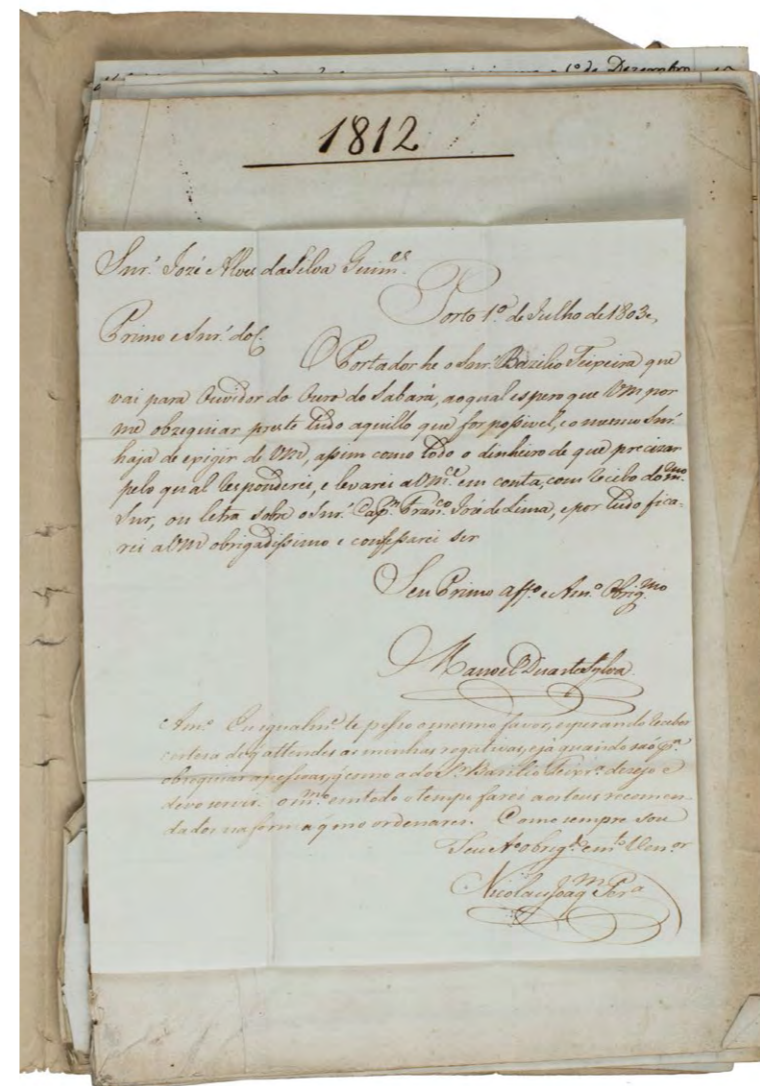 1º de Dezembro
1812
Snr.' Jozé Alves da Silva Guim.es
Porto 1º de Julho de 1803,,
Primo e Snr.' do C.
O Portador he o Snr.' Bazilio Teixeira que
vai para Ouvidor do Ouro do Sabará, ao qual espero que VM por
me obzequiar preste tudo aquillo que for possivel, e o mesmo Snr.'
haja de exigir de VM, assim como todo o dinheiro de que precizar
pelo qual responderei, e levarei a VM.ce em conta, com recebo do m.mo
Snr, ou letra sobre o Snr.' Cap.m Fran.co José de Lima, e por tudo fica-
rei a VM obrigadissimo e confessarei ser
Seu Primo aff.o e Am.o Obrig.mo
Manoel Duarte Sylva
Am.o Eu igualm.e te pesso o mesmo favor, esperando receber
certeza de q attendes as minhas rogativas, e já quando são p.a
obzequiar a pessoas, q como a do S.r Bazilio Teixr.a dezejo e
devo servir. o m.mo em todo o tempo farei aos teus recomen-
dados na forma q me ordenares. Como sempre sou
Seu obrig. e m.to Ven.or
Nicolau Joaq.m Per.a